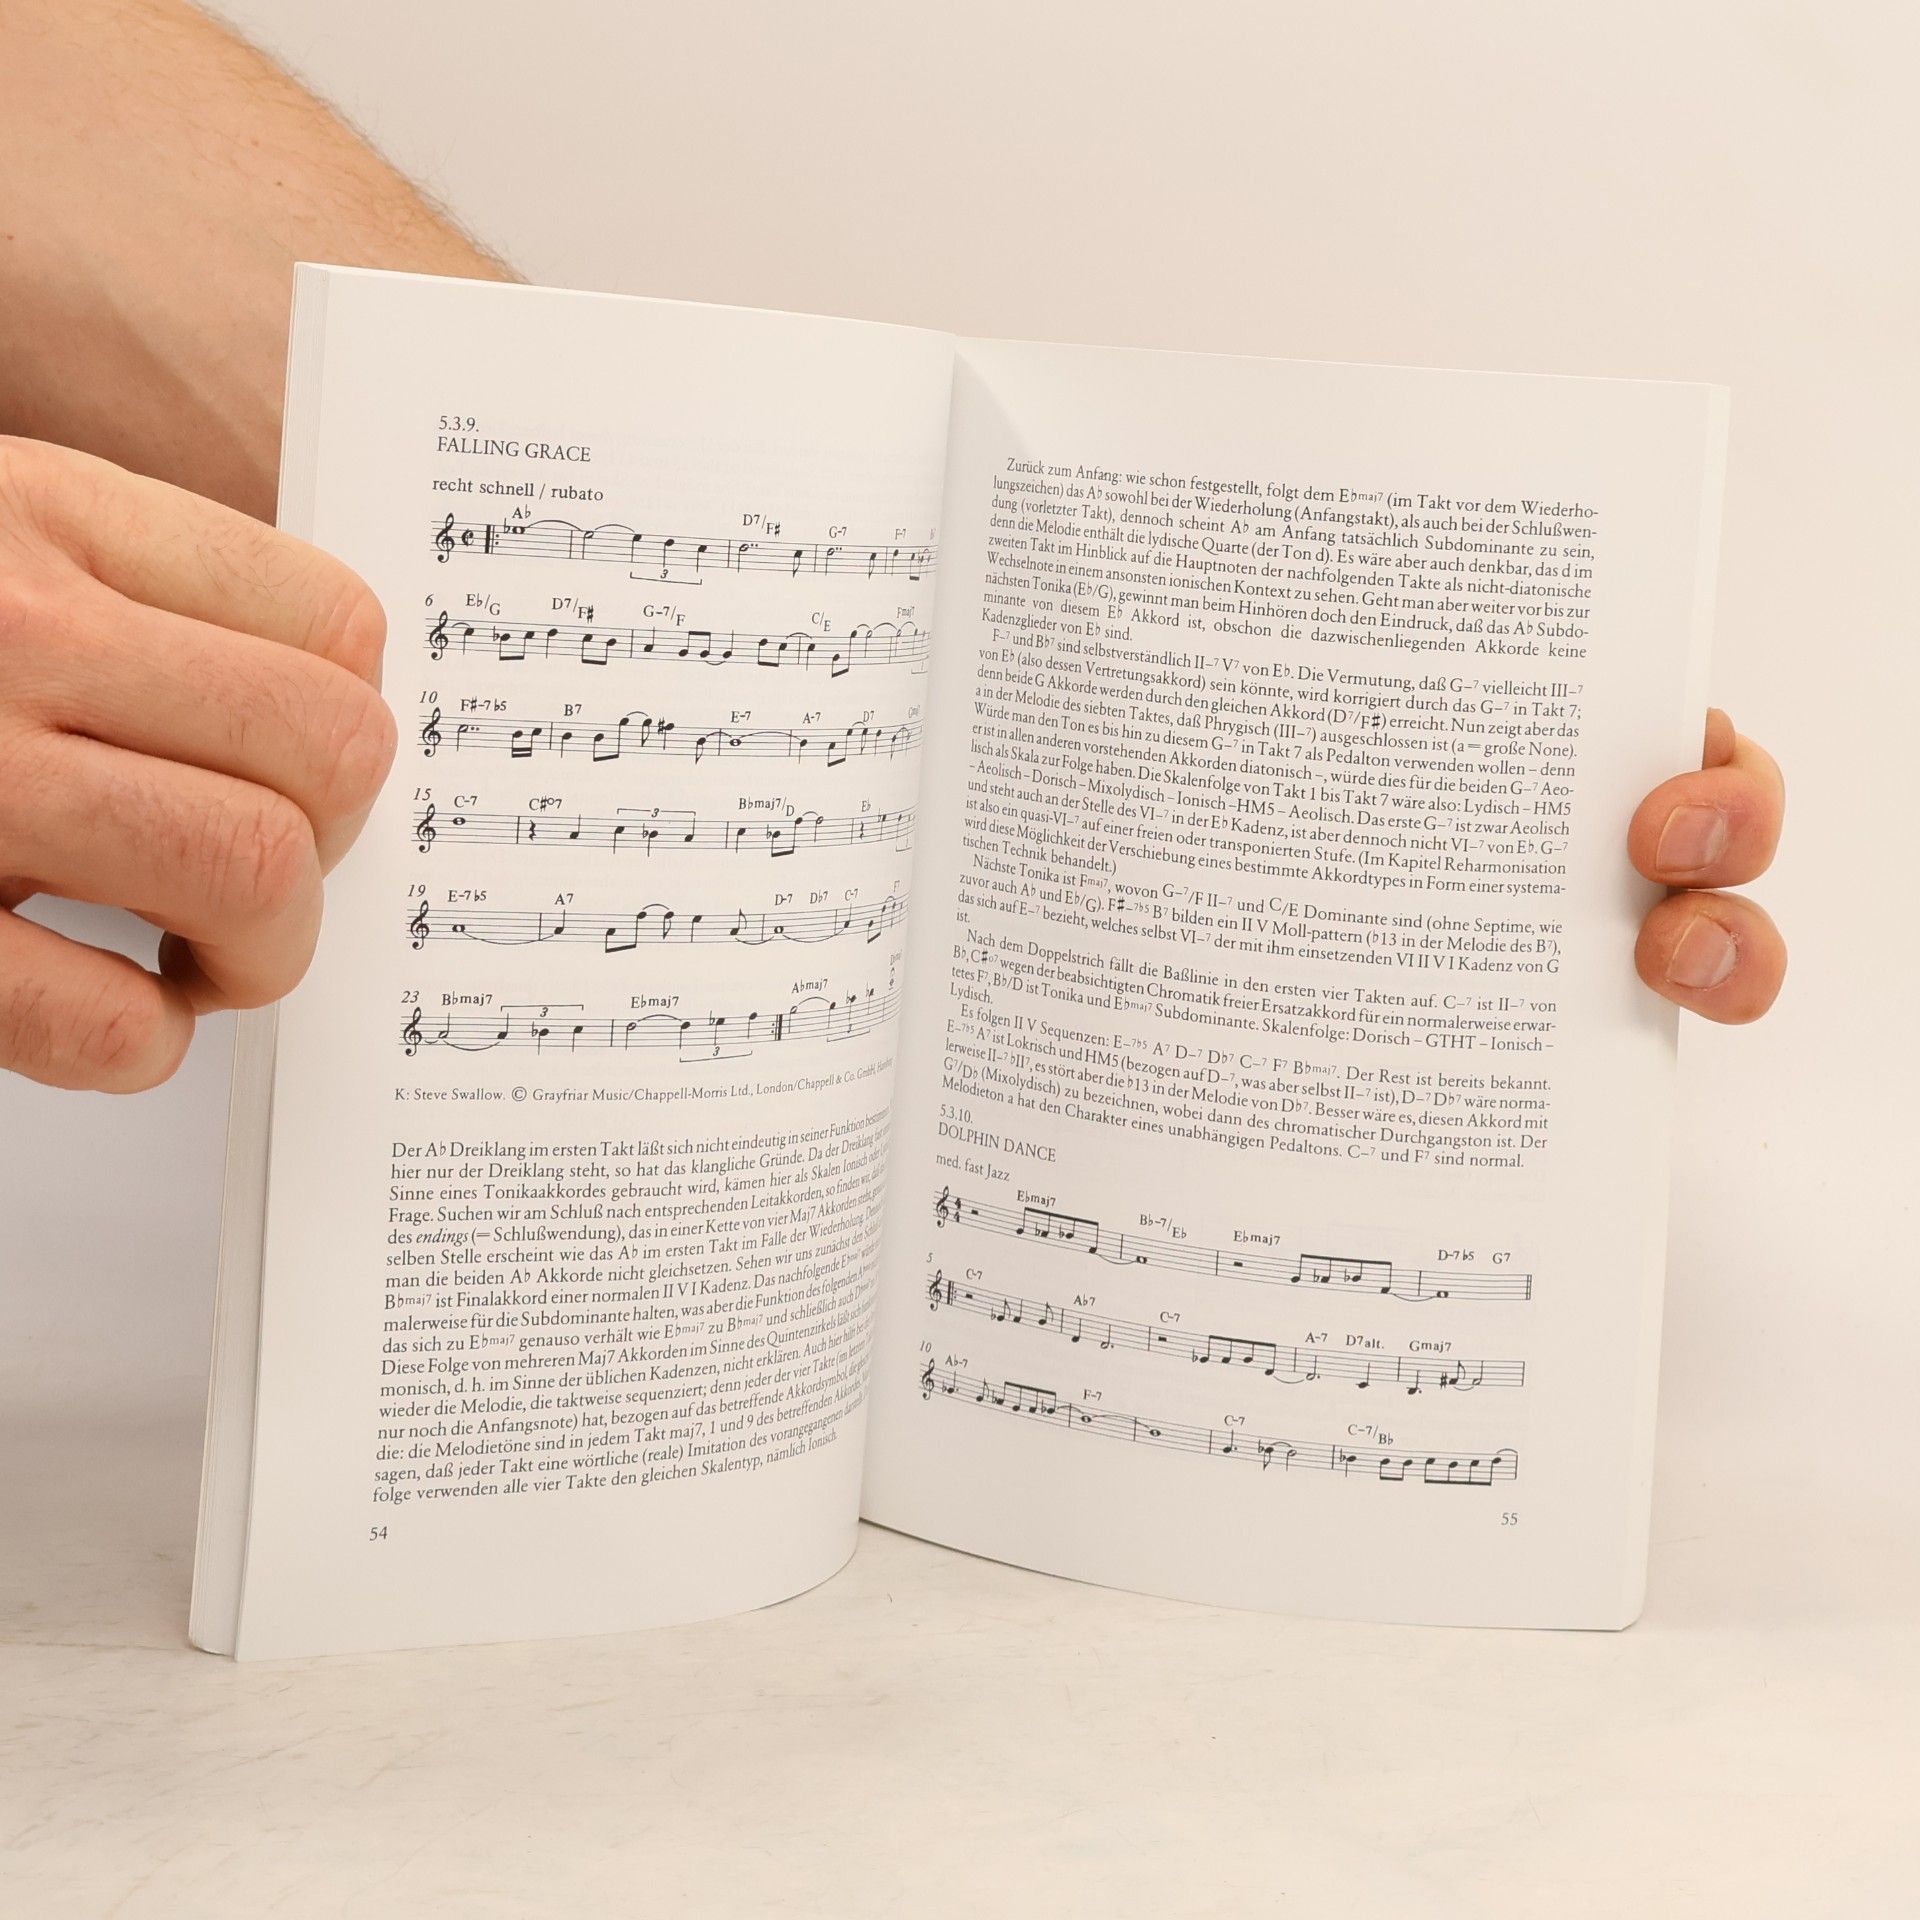 5.3.9.
FALLING GRACE
recht schnell / rubato
A♭ D7/F♯ G-7 F-7
3
6 E♭/G D7/F♯ G-7/F C/E Fmaj7
10 F♯-7♭5 B7 E-7 A-7 D7
15 C-7 C♯o7 3 B♭maj7/D E♭
19 E-7♭5 A7 D-7 D♭7 C-7 F7
23 B♭maj7 3 E♭maj7 3 A♭maj7 3
K: Steve Swallow. © Grayfriar Music/Chappell-Morris Ltd., London/Chappell & Co. GmbH, Hamburg
Der A♭ Dreiklang im ersten Takt läßt sich nicht eindeutig in seiner Funktion
hier nur der Dreiklang steht, so hat das klangliche Gründe. Da der Dreiklang
Sinne eines Tonikaakkordes gebraucht wird, kämen hier als Skalen Ionisch oder
Frage. Suchen wir am Schluß nach entsprechenden Leitakkorden, so finden wir, daß
des endings (= Schlußwendung), das in einer Kette von vier Maj7 Akkorden steht,
selben Stelle erscheint wie das A♭ im ersten Takt im Falle der Wiederholung.
man die beiden A♭ Akkorde nicht gleichsetzen. Sehen wir uns zunächst den
B♭maj7 ist Finalakkord einer normalen II V I Kadenz. Das nachfolgende E♭maj7
malerweise für die Subdominante halten, was aber die Funktion des folgenden
das sich zu E♭maj7 genauso verhält wie E♭maj7 zu B♭maj7 und schließlich auch
Diese Folge von mehreren Maj7 Akkorden im Sinne des Quintenzirkels läßt sich
monisch, d. h. im Sinne der üblichen Kadenzen, nicht erklären. Auch hier hilft
wieder die Melodie, die taktweise sequenziert; denn jeder der vier Takte (im letzten
nur noch die Anfangsnote) hat, bezogen auf das betreffende Akkordsymbol, die
die: die Melodietöne sind in jedem Takt maj7, 1 und 9 des betreffenden Akkordes.
sagen, daß jeder Takt eine wörtliche (reale) Imitation des vorangegangenen
folge verwenden alle vier Takte den gleichen Skalentyp, nämlich Ionisch.
54
Zurück zum Anfang: wie schon festgestellt, folgt dem E♭maj7 (im Takt vor dem Wiederho-
lungszeichen) das A♭ sowohl bei der Wiederholung (Anfangstakt), als auch bei der Schlußwen-
dung (vorletzter Takt), dennoch scheint A♭ am Anfang tatsächlich Subdominante zu sein,
denn die Melodie enthält die lydische Quarte (der Ton d). Es wäre aber auch denkbar, das d im
zweiten Takt im Hinblick auf die Hauptnoten der nachfolgenden Takte als nicht-diatonische
Wechselnote in einem ansonsten ionischen Kontext zu sehen. Geht man aber weiter vor bis zur
nächsten Tonika (E♭/G), gewinnt man beim Hinhören doch den Eindruck, daß das A♭ Subdo-
minante von diesem E♭ Akkord ist, obschon die dazwischenliegenden Akkorde keine
Kadenzglieder von E♭ sind.
F-7 und B♭7 sind selbstverständlich II-7 V7 von E♭. Die Vermutung, daß G-7 vielleicht III-7
von E♭ (also dessen Vertretungsakkord) sein könnte, wird korrigiert durch das G-7 in Takt 7;
denn beide G Akkorde werden durch den gleichen Akkord (D7/F♯) erreicht. Nun zeigt aber das
a in der Melodie des siebten Taktes, daß Phrygisch (III-7) ausgeschlossen ist (a = große None).
Würde man den Ton es bis hin zu diesem G-7 in Takt 7 als Pedalton verwenden wollen – denn
er ist in allen anderen vorstehenden Akkorden diatonisch –, würde dies für die beiden G-7 Aeo-
lisch als Skala zur Folge haben. Die Skalenfolge von Takt 1 bis Takt 7 wäre also: Lydisch – HM5
– Aeolisch – Dorisch – Mixolydisch – Ionisch – HM5 – Aeolisch. Das erste G-7 ist zwar Aeolisch
und steht auch an der Stelle des VI-7 in der E♭ Kadenz, ist aber dennoch nicht VI-7 von E♭. G-7
ist also ein quasi-VI-7 auf einer freien oder transponierten Stufe. (Im Kapitel Reharmonisation
wird diese Möglichkeit der Verschiebung eines bestimmte Akkordtypes in Form einer systema-
tischen Technik behandelt.)
Nächste Tonika ist Fmaj7, wovon G-7/F II-7 und C/E Dominante sind (ohne Septime, wie
zuvor auch A♭ und E♭/G). F♯-7♭5 B7 bilden ein II V Moll-pattern (♭13 in der Melodie des B7),
das sich auf E-7 bezieht, welches selbst VI-7 der mit ihm einsetzenden VI II V I Kadenz von G
ist.
Nach dem Doppelstrich fällt die Baßlinie in den ersten vier Takten auf. C-7 ist II-7 von
B♭, C♯o7 wegen der beabsichtigten Chromatik freier Ersatzakkord für ein normalerweise erwar-
tetes F7, B♭/D ist Tonika und E♭maj7 Subdominante. Skalenfolge: Dorisch – GTHT – Ionisch –
Lydisch.
Es folgen II V Sequenzen: E-7♭5 A7 D-7 D♭7 C-7 F7 B♭maj7. Der Rest ist bereits bekannt.
E-7♭5 A7 ist Lokrisch und HM5 (bezogen auf D-7, was aber selbst II-7 ist), D-7 D♭7 wäre norma-
lerweise II-7 ♭II7, es stört aber die ♭13 in der Melodie von D♭7. Besser wäre es, diesen Akkord mit
G7/D♭ (Mixolydisch) zu bezeichnen, wobei dann des chromatischer Durchgangston ist. Der
Melodieton a hat den Charakter eines unabhängigen Pedaltons. C-7 und F7 sind normal.
5.3.10.
DOLPHIN DANCE
med. fast Jazz
E♭maj7 B♭-7/E♭ E♭maj7 D-7♭5 G7
5 C-7 A♭7 C-7 A-7 D7alt. Gmaj7
10 A♭-7 F-7 C-7 C-7/B♭
55